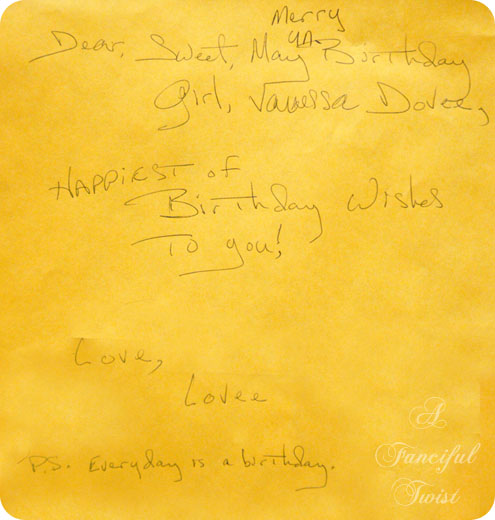 Merry
Dear, Sweet, May Birthday
Girl, Vanessa Dovee,
HAPPIEST of
Birthday Wishes
To you!
Love,
Lovee
P.S. Everyday is a birthday.
A
Fanciful
Twist